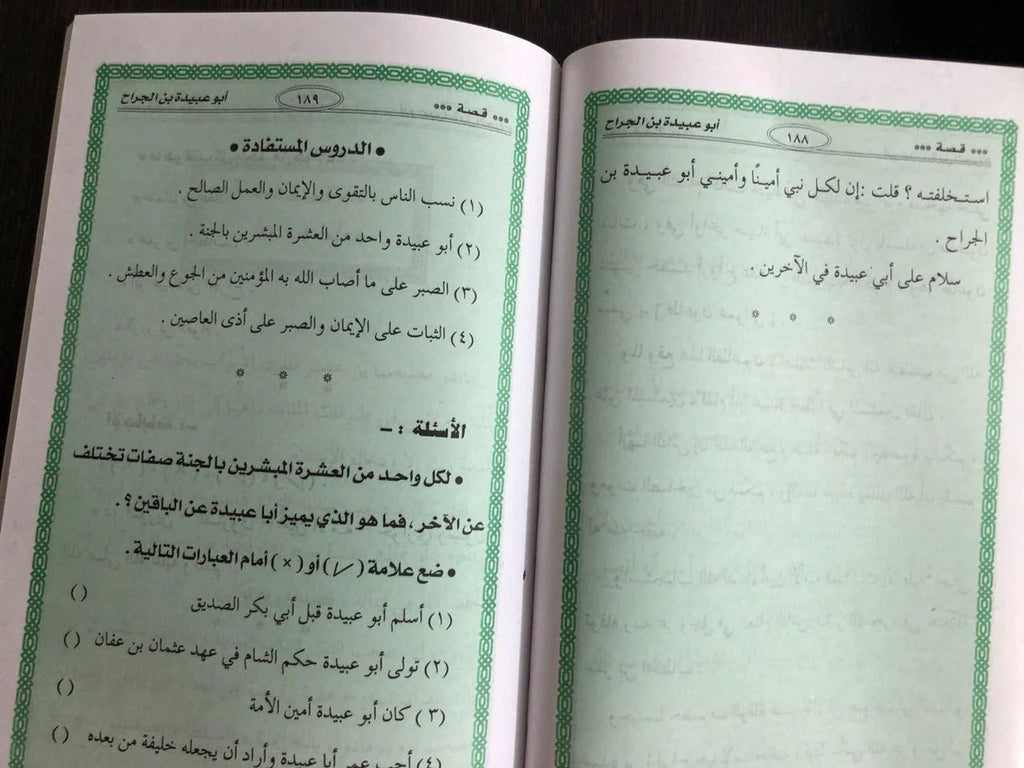 *** قصة ***
١٨٨
أبو عبيدة بن الجراح
استخلفته ؟ قلت :إن لكل نبي أمينًا وأميني أبو عبيدة بن
الجراح .
سلام على أبي عبيدة في الآخرين .
* * *
*** قصة ***
١٨٩
أبو عبيدة بن الجراح
• الدروس المستفادة •
(١) نسب الناس بالتقوى والإيمان والعمل الصالح .
(٢) أبو عبيدة واحد من العشرة المبشرين بالجنة .
(٣) الصبر على ما أصاب الله به المؤمنين من الجوع والعطش .
(٤) الثبات على الإيمان والصبر على أذى العاصين .
* * *
الأسئلة : –
• لكل واحد من العشرة المبشرين بالجنة صفات تختلف
عن الآخر ، فما هو الذي يميز أبا عبيدة عن الباقين ؟ .
• ضع علامة (✓) أو (×) أمام العبارات التالية .
(١) أسلم أبو عبيدة قبل أبي بكر الصديق ()
(٢) تولى أبو عبيدة حكم الشام في عهد عثمان بن عفان ()
(٣) كان أبو عبيدة أمين الأمة ()
(٤) أحب عمر أبا عبيدة وأراد أن يجعله خليفة من بعده ()